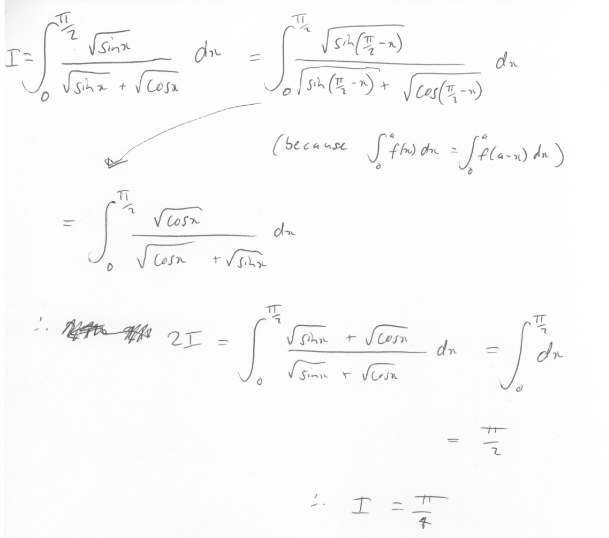 I = ∫₀^(π/2) √sinx / (√sinx + √cosx) dx = ∫₀^(π/2) √sin(π/2 - x) / (√sin(π/2 - x) + √cos(π/2 - x)) dx
(because ∫₀^a f(x) dx = ∫₀^a f(a-x) dx)
= ∫₀^(π/2) √cosx / (√cosx + √sinx) dx
∴ 2I = ∫₀^(π/2) (√sinx + √cosx) / (√sinx + √cosx) dx = ∫₀^(π/2) dx
= π/2
∴ I = π/4